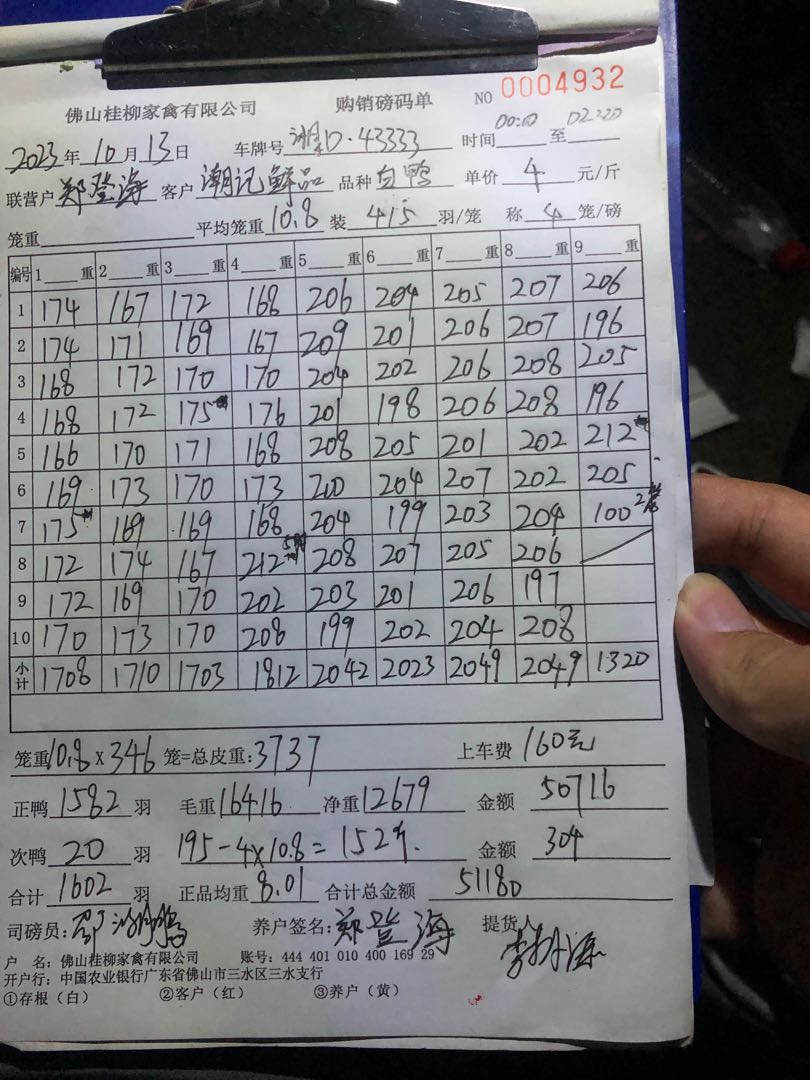 佛山桂柳家禽有限公司 购销磅码单 NO 0004932
2023年10月13日 车牌号 湘D·43333 时间 00:00 至 02:20
联营户 郑登海 客户 潮记鲜品 品种 白鸭 单价 4 元/斤
笼重 平均笼重 10.8 装 4/5 羽/笼 称 4 笼/磅
编号 1 重 2 重 3 重 4 重 5 重 6 重 7 重 8 重 9 重
1 174 167 172 168 206 204 205 207 206
2 174 171 169 167 209 201 206 207 196
3 168 172 170 170 204 202 206 208 205
4 168 172 175 176 201 198 206 208 196
5 166 170 171 168 208 205 201 202 212
6 169 173 170 173 200 204 207 202 205
7 175 169 169 168 204 199 203 204 100 2笼
8 172 174 167 212 208 207 205 206
9 172 169 170 202 203 201 206 197
10 170 173 170 208 199 202 204 208
小计 1708 1710 1703 1812 2042 2023 2049 2049 1320
笼重 10.8 x 346 笼=总皮重: 3737 上车费 160元
正鸭 1582 羽 毛重 16416 净重 12679 金额 50716
次鸭 20 羽 195-4×10.8=152斤. 金额 304
合计 1602 羽 正品均重 8.01 合计总金额 51180
司磅员: 养户签名: 郑登海 提货人
户 名: 佛山桂柳家禽有限公司 账号: 444 401 010 400 169 29
开户行: 中国农业银行广东省佛山市三水区三水支行
①存根(白) ②客户(红) ③养户(黄)